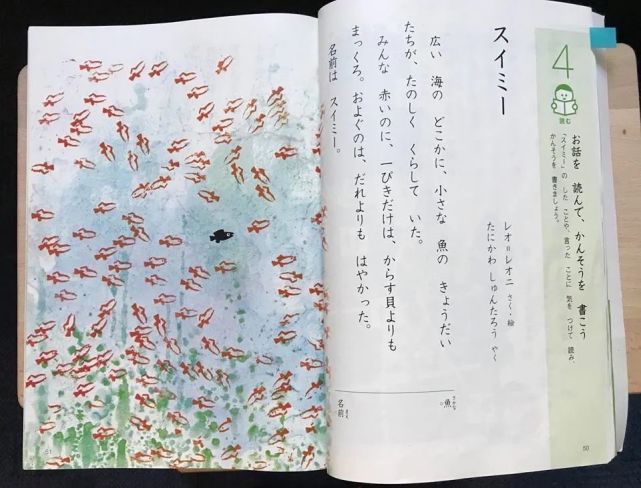 4
読む
お話を 読んで、かんそうを 書こう
「スイミー」の した ことや、言った ことに 気を つけて 読み、
かんそうを 書きましょう。
スイミー
レオ＝レオニ さく・絵
たにかわ しゅんたろう やく
広い 海の どこかに、小さな 魚の きょうだい
たちが、たのしく くらして いた。
みんな 赤いのに、一ぴきだけは、からす貝よりも
まっくろ。およぐのは、だれよりも はやかった。
名前は スイミー。
魚。
さかな
名前
50
51